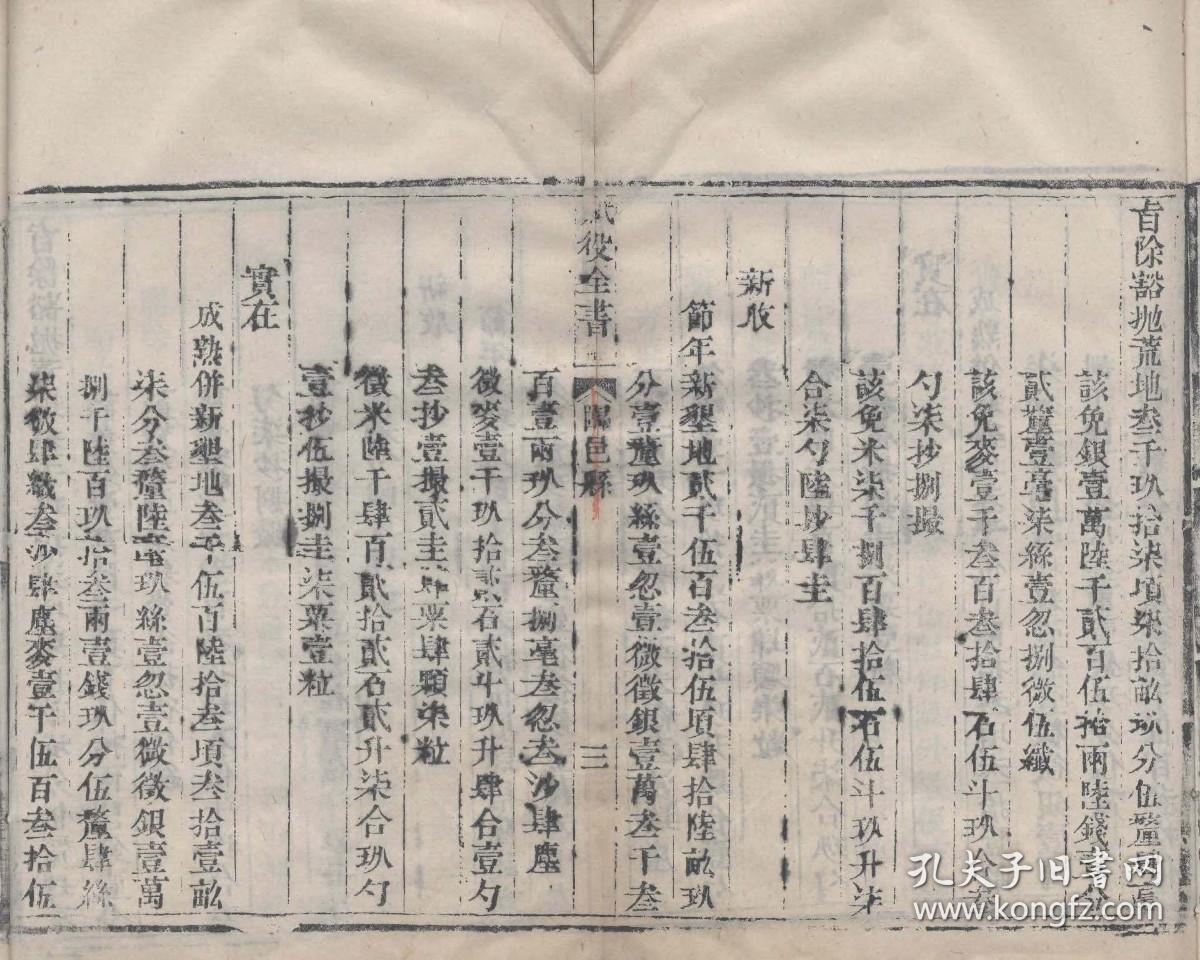 旨除豁抛荒地叁千玖拾柒頃柒拾畝玖分伍釐
該免銀壹萬陸千貳百伍拾兩陸錢
貳釐壹毫柒絲壹忽捌微伍纖
該免麥壹千叁百叁拾肆石伍斗玖合叁
勺柒抄捌撮
該免米柒千捌百肆拾伍石伍斗玖升柒
合柒勺陸抄肆圭
新收
節年新墾地貳千伍百叁拾伍項肆拾陸畝玖
分壹釐玖絲壹忽壹微徵銀壹萬叁千叁
賦役全書 陽邑縣 三
百壹兩玖分叁釐捌毫叁忽叁沙肆塵
徵麥壹千玖拾貳石貳斗玖升肆合壹勺
叁抄壹撮貳圭肆粟肆顆柒粒
徵米陸千肆百貳拾貳石貳升柒合玖勺
壹抄伍撮捌圭柒粟壹粒
實在
成熟併新墾地叁千伍百陸拾叁項叁拾壹畝
柒分叁釐陸毫玖絲壹忽壹微徵銀壹萬
捌千陸百玖拾叁兩壹錢玖分伍釐肆絲
柒微肆纖叁沙肆塵麥壹千伍百叁拾伍
孔夫子旧书网
www.kongfz.com